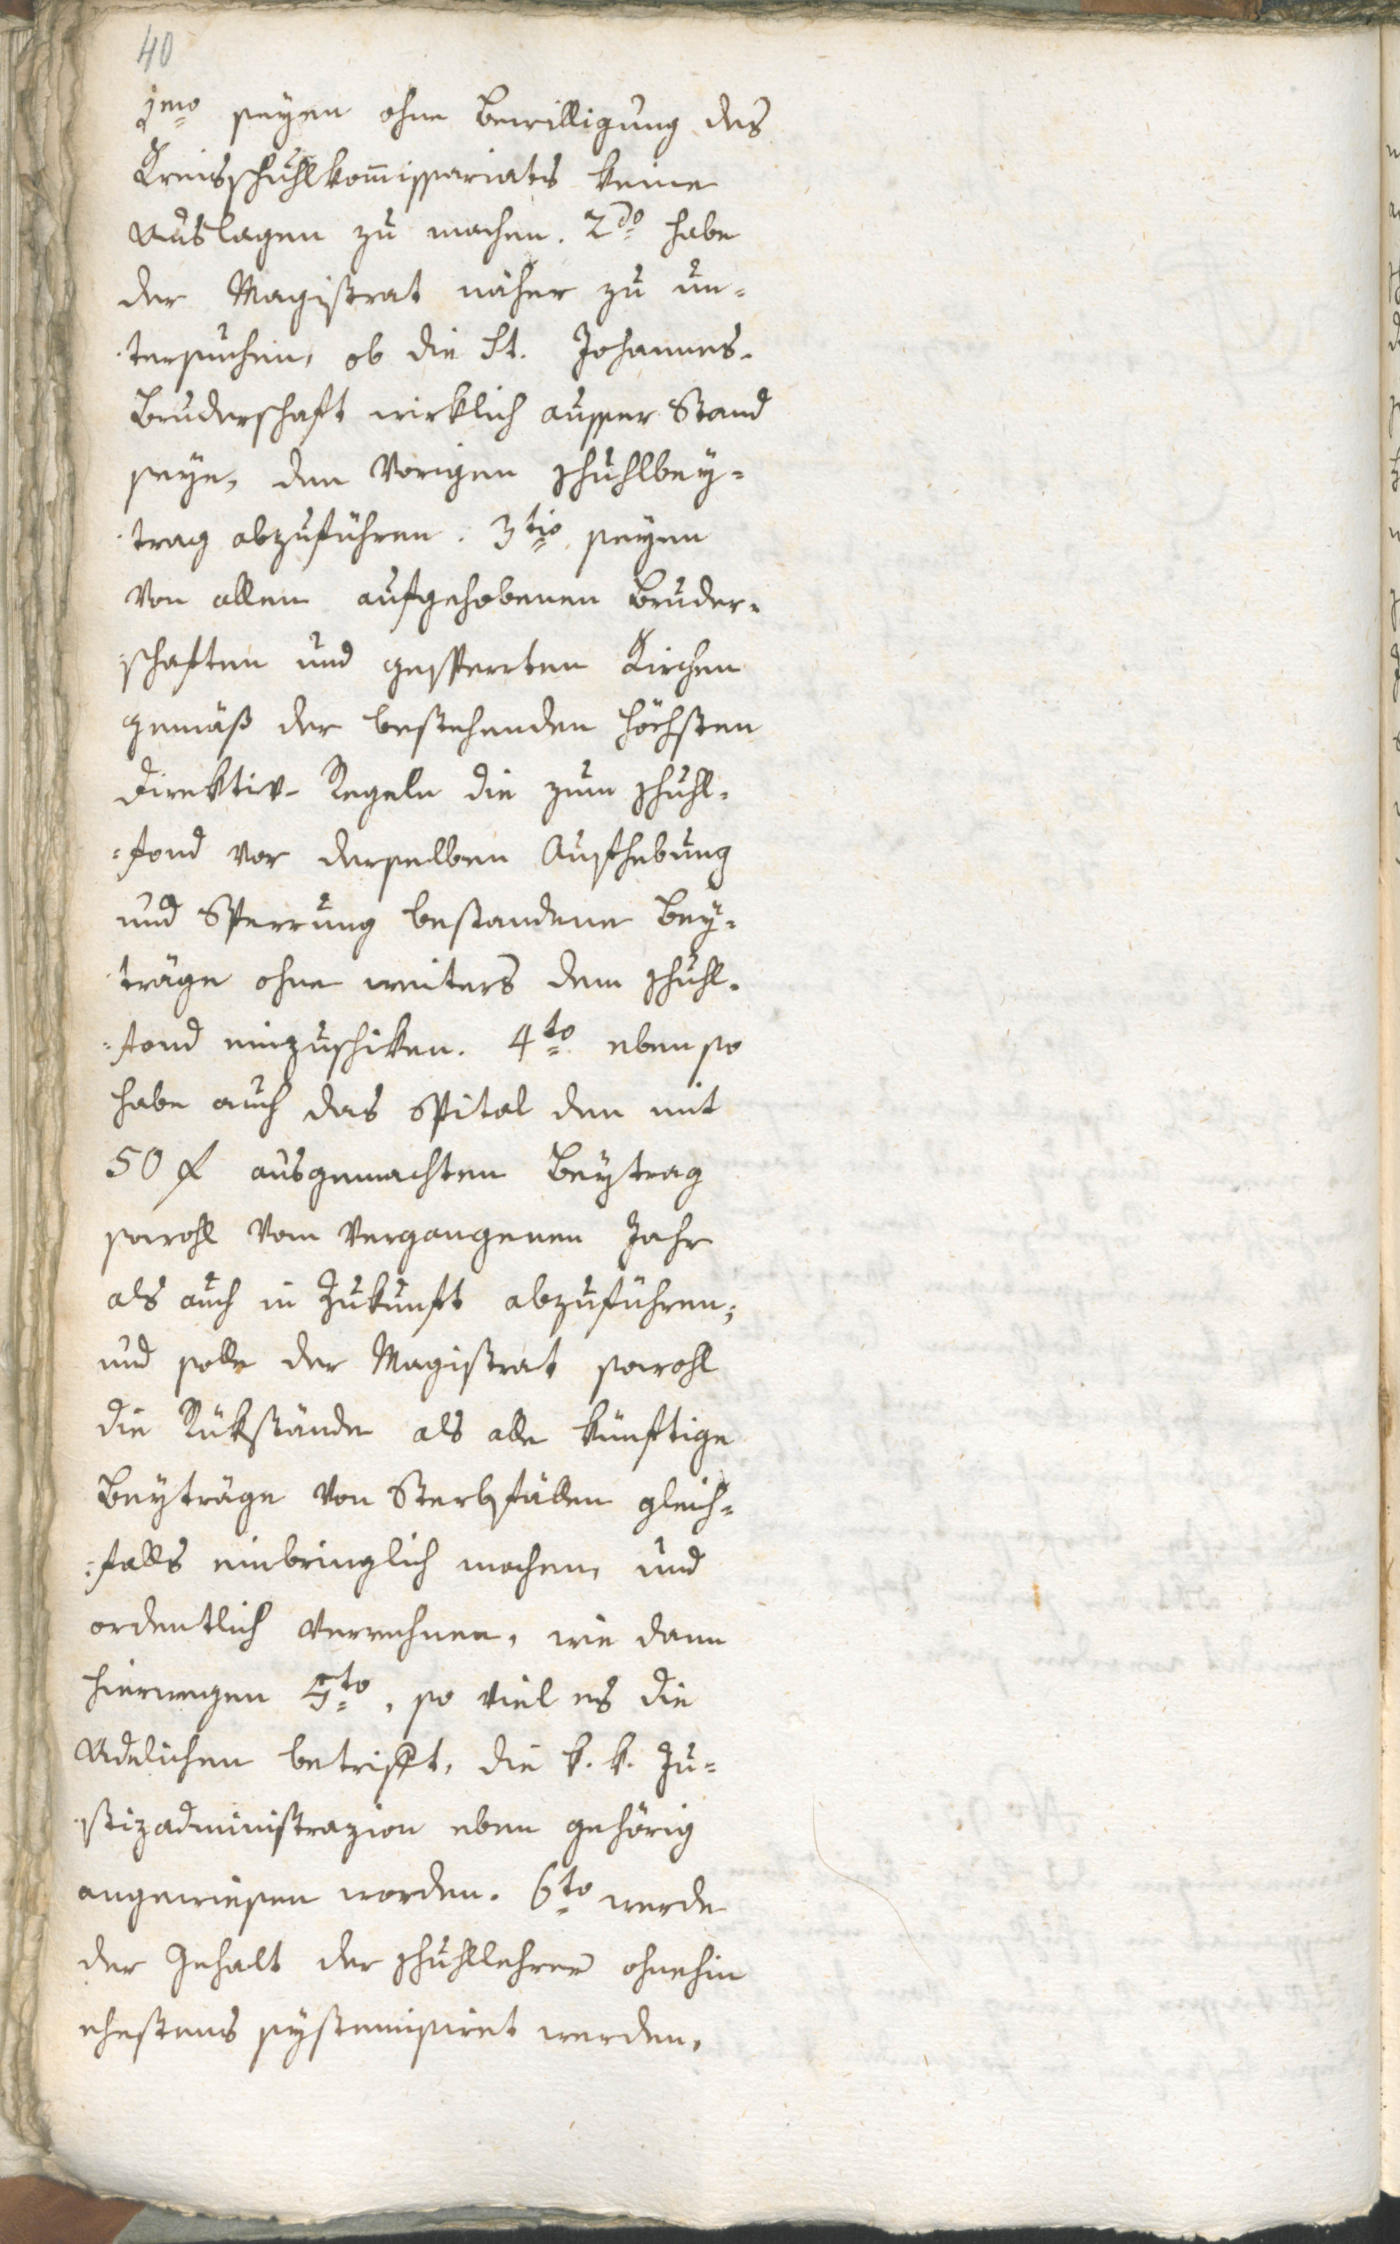 40
1mo seyen ohne Bewilligung des
Kreisschuhlkom̅issariats keine
Auslagen zu machen. 2do habe
der Magistrat näher zu un-
tersuchen, ob die St. Johannes-
Bruderschaft wirklich ausser Stand
seye, den vorigen Schuhlbey-
trag abzuführen. 3tio seyen
von allen aufgehobenen Bruder-
schaften und gesperrten Kirchen
gemäß der bestehenden höchsten
Direktiv-Regeln die zum Schuhl-
fond vor derselben Aufhebung
und Sperrung bestandene Bey-
träge ohne weiters dem Schuhl-
fond einzuschiken. 4to ebenso
habe auch das Spital den mit
50 f ausgemachten Beytrag
sowohl vom vergangenen Jahr
als auch in Zukunft abzuführen;
und solle der Magistrat sowohl
die Rükstände als alle künftige
Beyträge von Sterbfällen gleich-
falls einbringlich machen, und
ordentlich verrechnen, wie dann
hierwegen 5to, so viel es die
Adelichen betrifft, die k. k. Ju-
stizadministrazion eben gehörig
angewiesen worden. 6to werde
der Gehalt der Schuhllehrer ohnehin
ehestens systemisiret werden,